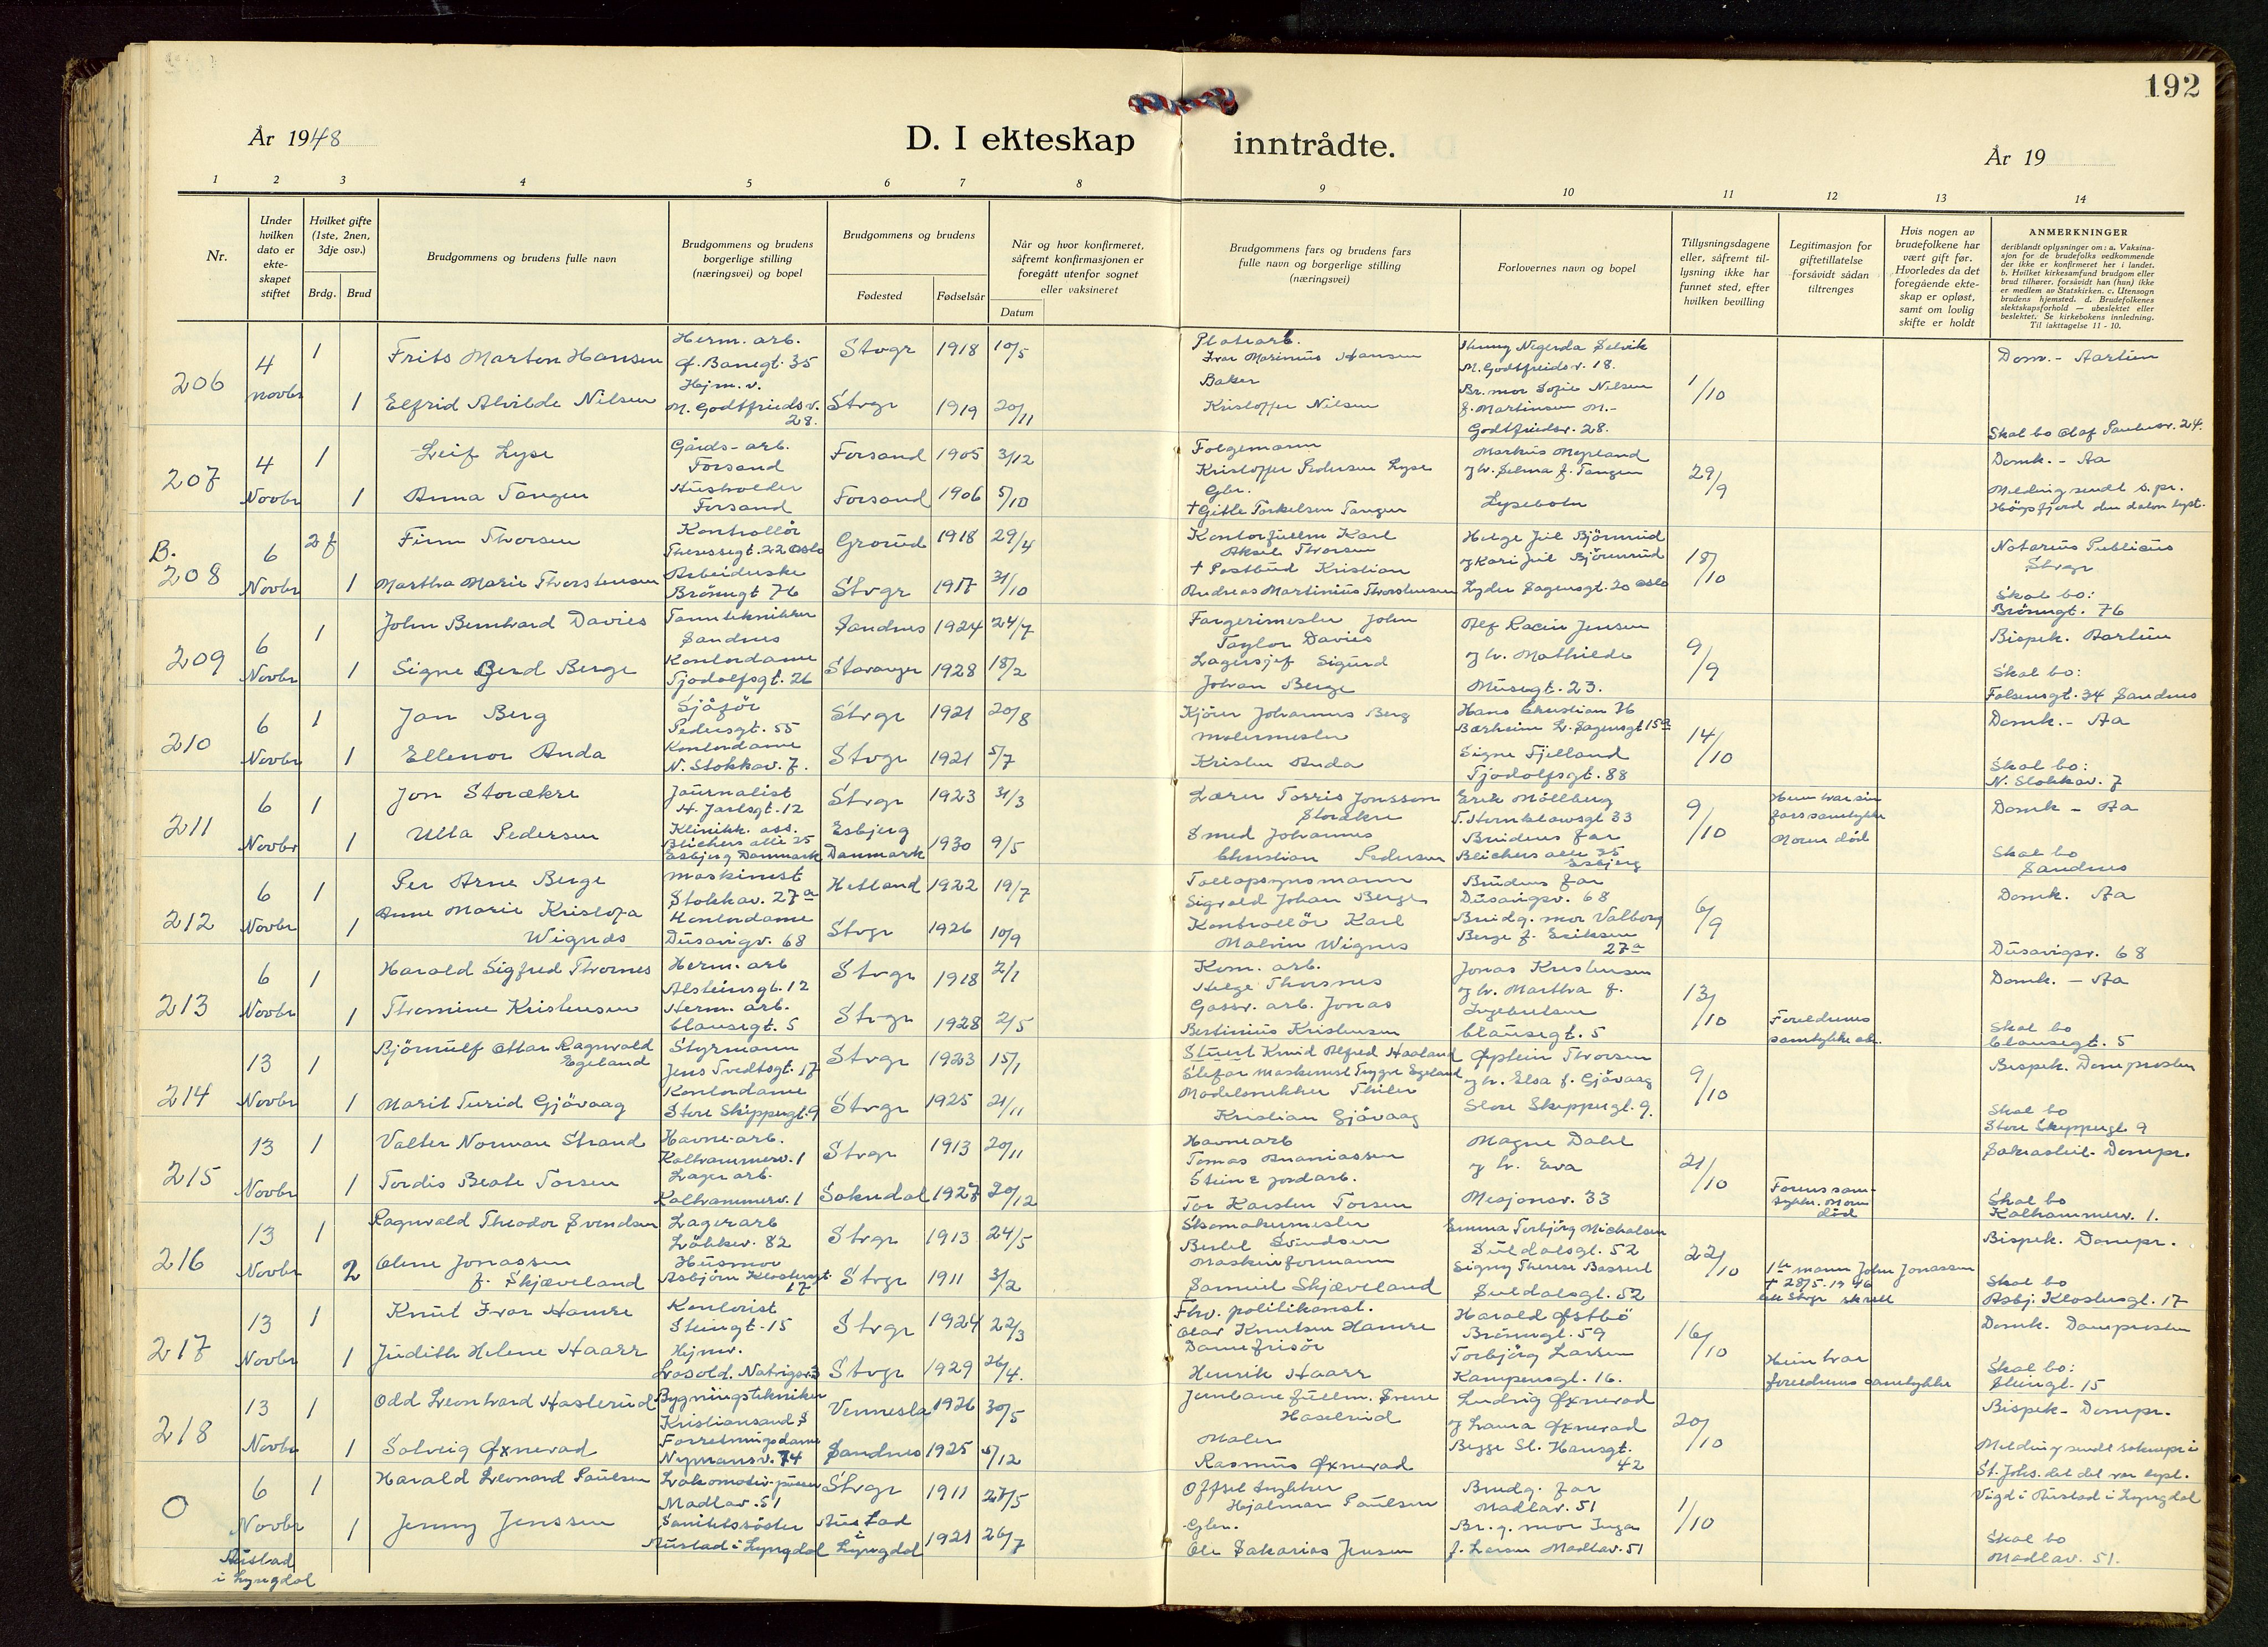 192
År 1948
D. I ekteskap inntrådte.
År 19
1 2 3 4 5 6 7 8 9 10 11 12 13 14
Nr.
Under hvilken dato er ekte-skapet stiftet
Hvilket gifte (1ste, 2nen, 3dje osv.)
Brdg. Brud
Brudgommens og brudens fulle navn
Brudgommens og brudens borgerlige stilling (næringsvei) og bopel
Brudgommens og brudens
Fødested Fødselsår
Når og hvor konfirmeret, såfremt konfirmasjonen er foregått utenfor sognet eller vaksineret
Datum
Brudgommens fars og brudens fars fulle navn og borgerlige stilling (næringsvei)
Forlovernes navn og bopel
Tillysningsdagene eller, såfremt til-lysning ikke har funnet sted, efter hvilken bevilling
Legitimasjon for giftetillatelse forsåvidt sådan tiltrenges
Hvis nogen av brudefolkene har vært gift før. Hvorledes da det foregående ekte-skap er opløst, samt om lovlig skifte er holdt
ANMERKNINGER
deriblandt oplysninger om: a. Vaksina-sjon for de brudefolks vedkommende der ikke er konfirmeret her i landet. b. Hvilket kirkesamfund brudgom eller brud tilhører, forsåvidt han (hun) ikke er medlem av Statskirken. c. Utensogn brudens hjemsted. d. Brudefolkenes slektskapsforhold — ubeslektet eller beslektet. Se kirkebokens innledning. Til iakttagelse 11 - 10.
206 4 novbr 1 Frits Marton Hansen Herm. arb. Stvgr 1918 10/5
1 Elfrid Alvilde Nilsen Hjm. v. M. Godtfriedsv. 28. Stvgr 1919 20/11
Ivar Marinius Hansen
Baker Kristoffer Nilsen
M. Godtfriedsv. 18.
Br. mor Sofie Nilsen f. Martinsen M. Godtfriedsv. 28.
1/10
Dom. - Aartun
Skal bo Olaf Paulusv. 24.
207 4 Novbr 1 Leif Lyse Gårds-arb. Forsand Forsand 1905 3/12
1 Anna Tangen Husholder Forsand Forsand 1906 5/10
Kristoffer Pedersen Lyse
Gbr. † Gitle Torkelsen Tangen
Markus Mepland
g hr. Selma f. Tangen
Lysebotn
29/9
Domk. - Aa
Melding sendt s. pr.
Högsfjord den daton lyst.
B. 208 6 Novbr 2 f Finn Thorsen Kontrollör Theresegt. 22 Oslo Grorud 1918 29/4
1 Martha Marie Thorstensen Arbeiderske Brönngt 76 Stvgr 1917 31/10
Kontorfullm Karl Aksel Thorsen
† Postbud Kristian Andreas Martinius Thorstensen
Helge Jul Björnrud
g Kari Juel Björnrud
Lyder Sagensgt. 20 Oslo
18/10
Notarius Publicus Stvgr
Skal bo: Brönngt. 76
209 6 Novbr 1 John Bernhard Davies Tanntekniker Sandnes Sandnes 1924 24/7
1 Signe Gerd Berge Kontordame Tjodolfsgt. 26 Stavanger 1928 18/2
Fargerimester John Taylor Davies
Lagersjef Sigurd Johan Berge
Alf Racin Jensen
g hr. Mathilde
Musegt. 23.
9/9
Bispek. Aartun
Skal bo: Falsensgt. 34 Sandnes
210 6 Novbr 1 Jan Berg Sjåför Pedersgt. 55 Stvgr 1921 20/8
1 Ellenor Anda Kontordame N. Stokkav. 7. Stvgr 1921 5/7
Kjörer Johannes Berg
Malermester Kristen Anda
Hans Christian
Bærheim L. Sagensgt 15a
Signe Fjelland
Tjodolfsgt. 88
14/10
Domk. - Aa
Skal bo: N. Stokkav. 7
211 6 Novbr 1 Jon Storækre Journalist H. Jarlsgt. 12 Stvgr 1923 31/3
1 Ulla Pedersen Klinikk. ass. Blichers alle 25 Esbjerg Danmark Esbjerg Danmark 1930 9/5
Lærer Torris Jonsson Storækre
Smed Johannes Christian Pedersen
Erik Möllberg
T. Hornklowsgt 33
Brudens far
Blichers alle 25 Esbjerg
9/10
Hun har sin fars samtykke
Moren död
Domk - Aa
Skal bo Sandnes
212 6 Novbr 1 Per Arne Berge Maskinist Stokkav. 27a Hetland 1922 19/7
1 Anne Marie Kristofa Wignes Kontordame Dusavigv. 68 Stvgr 1926 10/9
Tollopsynsmann Sigvald Johan Berge
Kontrollör Karl Malvin Wignes
Brudens far
Dusavigv. 68
Brudg. mor Valborg Berge f. Eriksen 27a
6/9
Domk. Aa
Dusavigv. 68
213 6 Novbr 1 Harald Sigfred Thornes Herm. arb Alsteinsgt. 12 Stvgr 1918 2/1
1 Thomine Kristensen Herm. arb. Clausegt. 5 Stvgr 1928 2/5
Kom. arb. Helge Thorsnes
Gassv. arb. Jonas Bertinius Kristensen
Jonas Kristensen
g hr. Martha f. Ingebretsen
Clausegt. 5
13/10
Foreldrenes samtykke ok.
Domk. - Aa
Skal bo Clausegt. 5
214 13 Novbr 1 Björnulf Ottar Ragnvald Egeland Styrmann Jens Tvedtsgt. 17 Stvgr 1923 15/1
1 Marit Turid Gjövaag Kontordame Store Skippergt. 9 Stvgr 1925 21/11
Stuert Knud Alfred Haaland
Stefar maskinist Trygve Egeland
Modelsnekker Thiler Kristian Gjövaag
Øystein Thorsen
g hr. Elsa f. Gjövaag
Store Skippergt. 9.
9/10
Bispek. Domprosten
Skal bo Store Skippergt. 9
215 13 Novbr 1 Valter Norman Strand Havne-arb. Kalhammerv. 1 Stvgr 1913 20/11
1 Tordis Beate Torsen Lager arb. Kalhammerv. 1 Sokndal 1927 20/12
Havnearb Tomas Ananiassen
Stein & jordarb. Tor Karsten Torsen
Magne Dahl
g hr. Eva
Misjonsv. 33
21/10
Farens sam-tykke. Moren död
Sakrastiet Dompr.
Skal bo Kalhammerv. 1.
216 13 Novbr 1 Ragnvald Theodor Svendsen Lagerarb Lökkev. 82 Stvgr 1913 24/5
2 Olene Jonassen f. Skjæveland Husmor Asbjörn Klostersgt. 17 Stvgr 1911 3/2
Skomakermester Bertel Svendsen
Maskinformann Samuel Skjæveland
Emma Torbjörg Michalsen
Suldalsgt. 52
Signy Therese
Suldalsgt. 52
22/10
1ste mann John Jonassen
† 28/5. 1946
Bispek. Dompr.
Skal bo Asbj. Klostersgt. 17
217 13 Novbr 1 Knut Ivar Hamre Kontorist Steingt. 15 Stvgr 1924 22/3
1 Judith Helene Haarr Hjmv. Stvgr 1929 26/4.
† hv. politikonst. Olav Knutsen Hamre
Damefrisör Henrik Haarr
Harald Østbö
Brönngt. 59
Torbjörg Larsen
Kampensgt. 16.
16/10
Hun har foreldrenes samtykke
Domk. Domprosten
Skal bo: Steingt. 15
218 13 Novbr 1 Odd Leonhard Haslerud Bygningstekniker Kristiansand S Vennesla 1926 30/5
1 Solveig Øxnevad Forretningsdame Nymansv. 74 Sandnes 1925 5/12
Haselrud
Maler Rasmus Øxnevad
Ludvig Øxnevad
g Laura Øxnevad
Begge St. Hansgt. 42
20/10
Bispek - Dompr.
Melding sendt soknepr. i St. Johs. det det var lyst.
O 6 Novbr Austad i Lyngdal 1 Harald Leonard Paulsen Madlav. 51 Stvgr 1911 27/5
1 Jenny Jenssen Sanitetssöster Austad i Lyngdal Austad i Lyngdal 1921 26/7
Offset trykker Hjalmar Paulsen
Gbr. Ole Sakarias Jensen
Brudg. far Madlav. 51
Br. g. mor Inga f. Larsen Madlav. 51
1/10
Vigd i Austad i Lyngdal
Skal bo Madlav. 51.